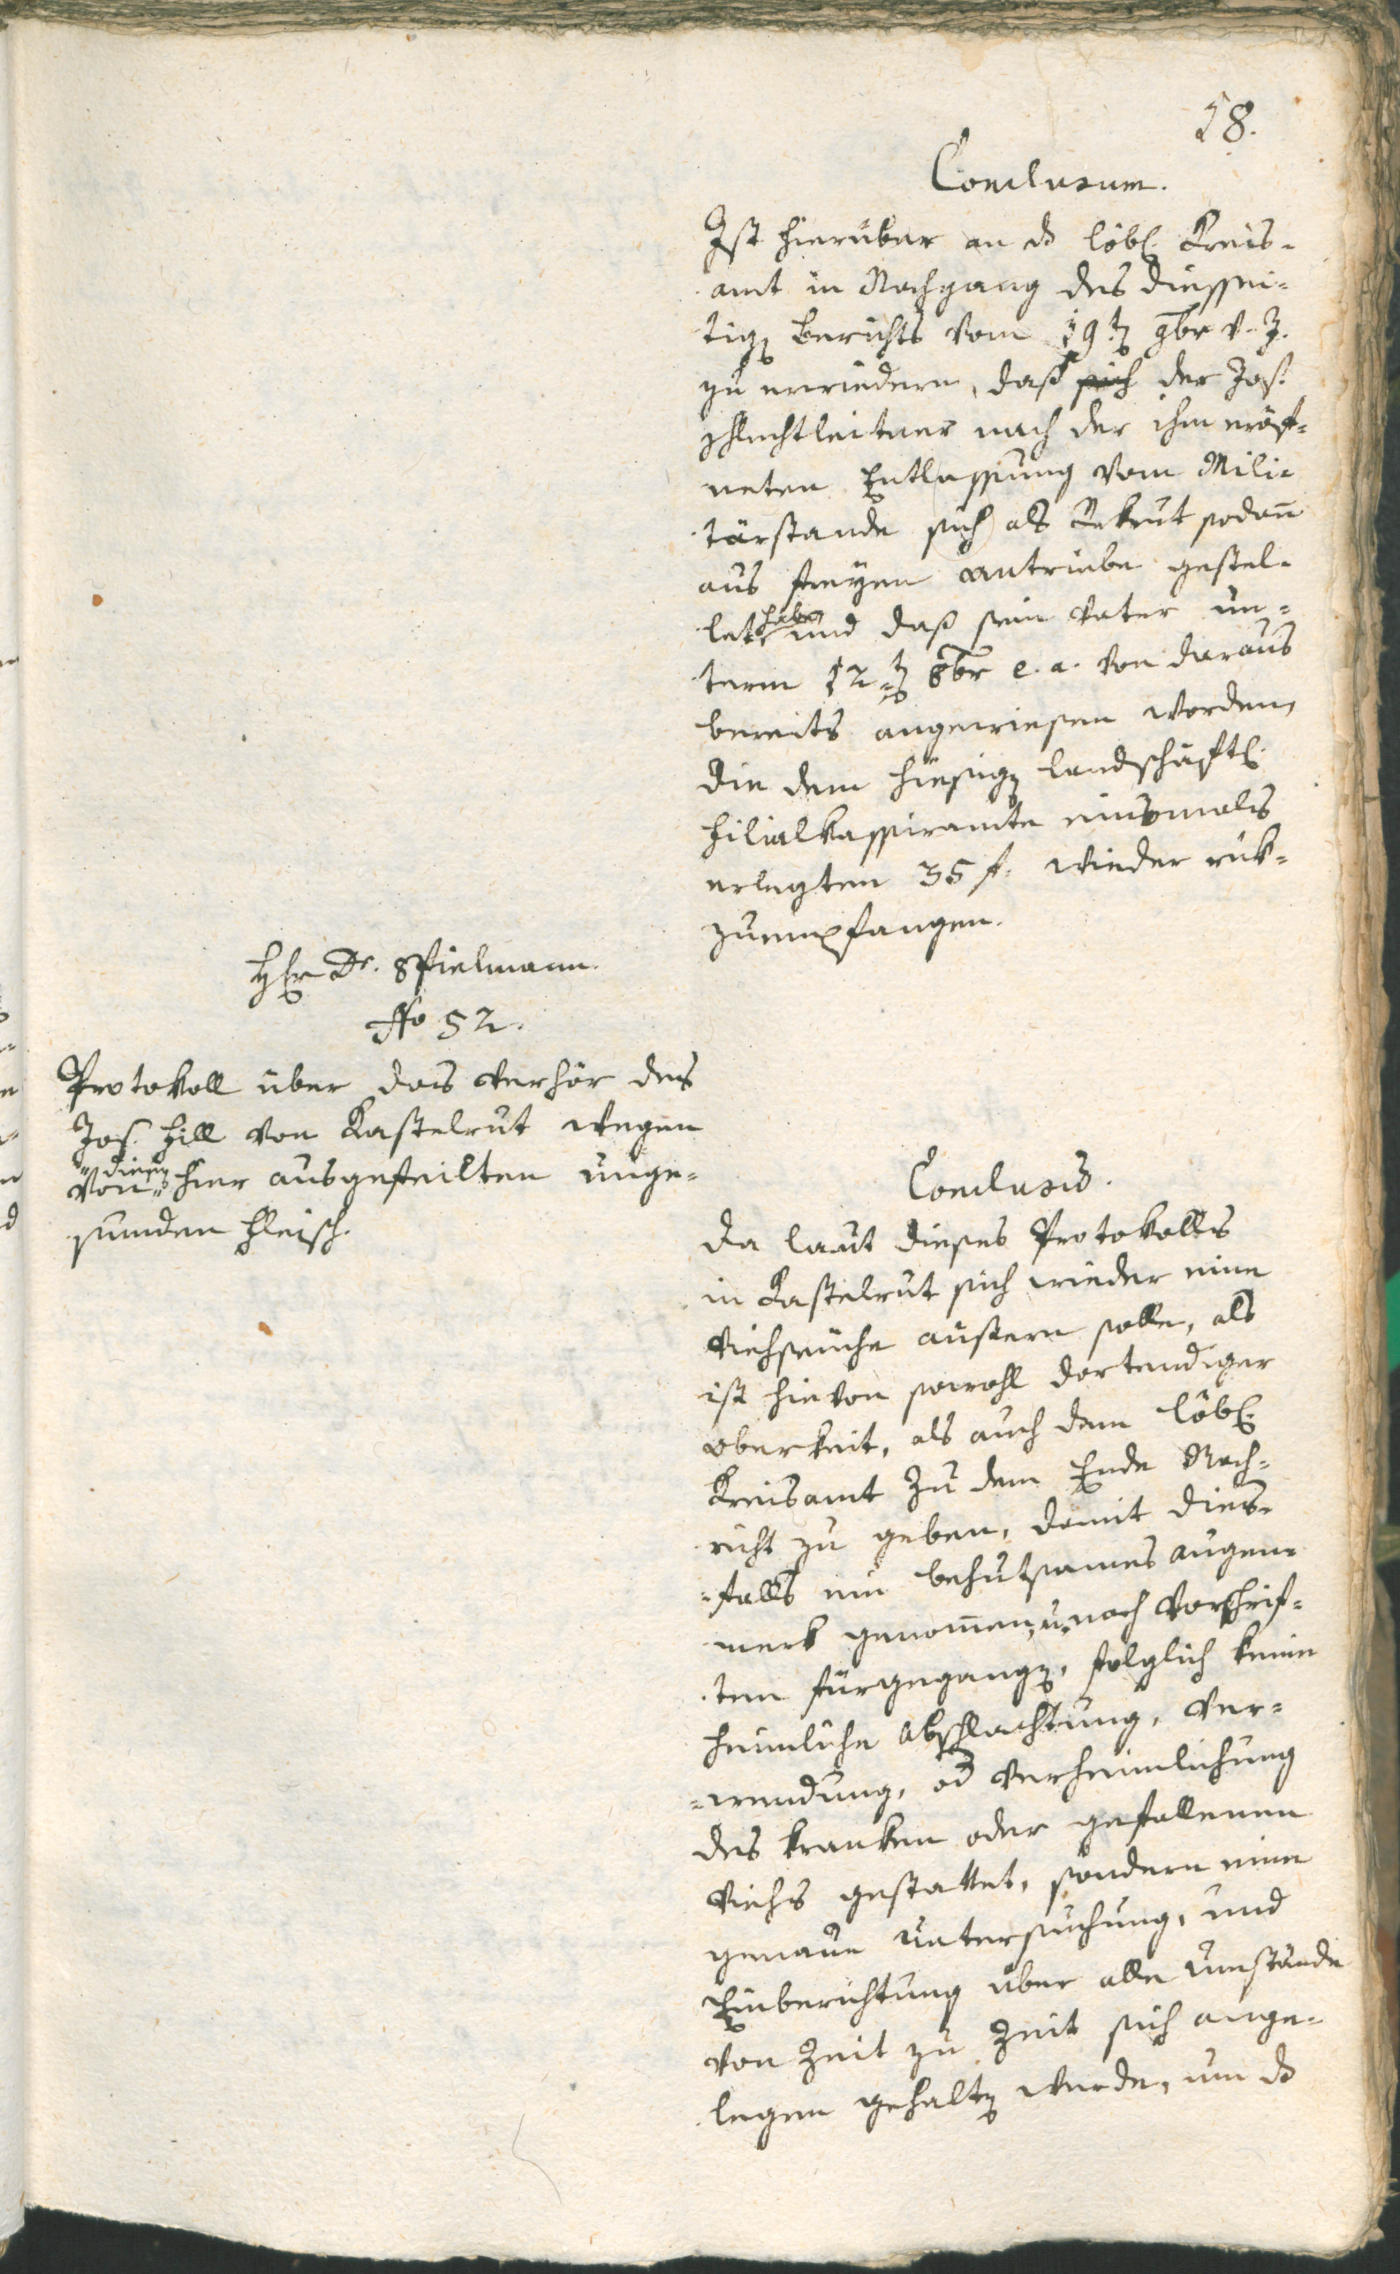 18.
Conclusum.
Ist hierüber an d löbl. Kreis-
amt in Nachgang des diessei-
tigen Berichts vom 19.ten 9br v. J.
zu erwiedern, daß der Jos.
Schlechtleitner nach der ihm eröf-
neten Entlassung vom Mili-
tärstande sich als Rekrut sodann
aus freyen Antriebe gestel-
let habe und daß sein Vater un-
term 12ten 8br e. a. von daraus
bereits angewiesen worden,
die dem hiesigen landschäftl.
Filialkassieramte einsmals
erlegten 35 f. wieder rük-
zuempfangen.
Hr Dr. Spielmann.
No 52.
Protokoll über das Verhör des
Jos. Hill von Kastelrut wegen
von diesen hier ausgefeilten unge-
sunden Fleisch.
Conclusum.
Da laut dieses Protokolls
in Kastelrut sich wieder eine
Viehseuche äußern solle, als
ist hievon sowohl dortendiger
Oberkeit, als auch dem löbl.
Kreisamt zu dem Ende Nach-
richt zu geben, damit dies-
falls ein behutsames Augen-
merk genommen, u. nach Vorschrif-
ten fürgegangen, folglich keine
heimliche Abschlachtung, Ver-
wendung, od Verheimlichung
des kranken oder gefallenen
Viehs gestattet, sondern eine
genaue Untersuchung, und
Einberichtung über alle Umstände
von Zeit zu Zeit sich ange-
legen gehalten werde, um d